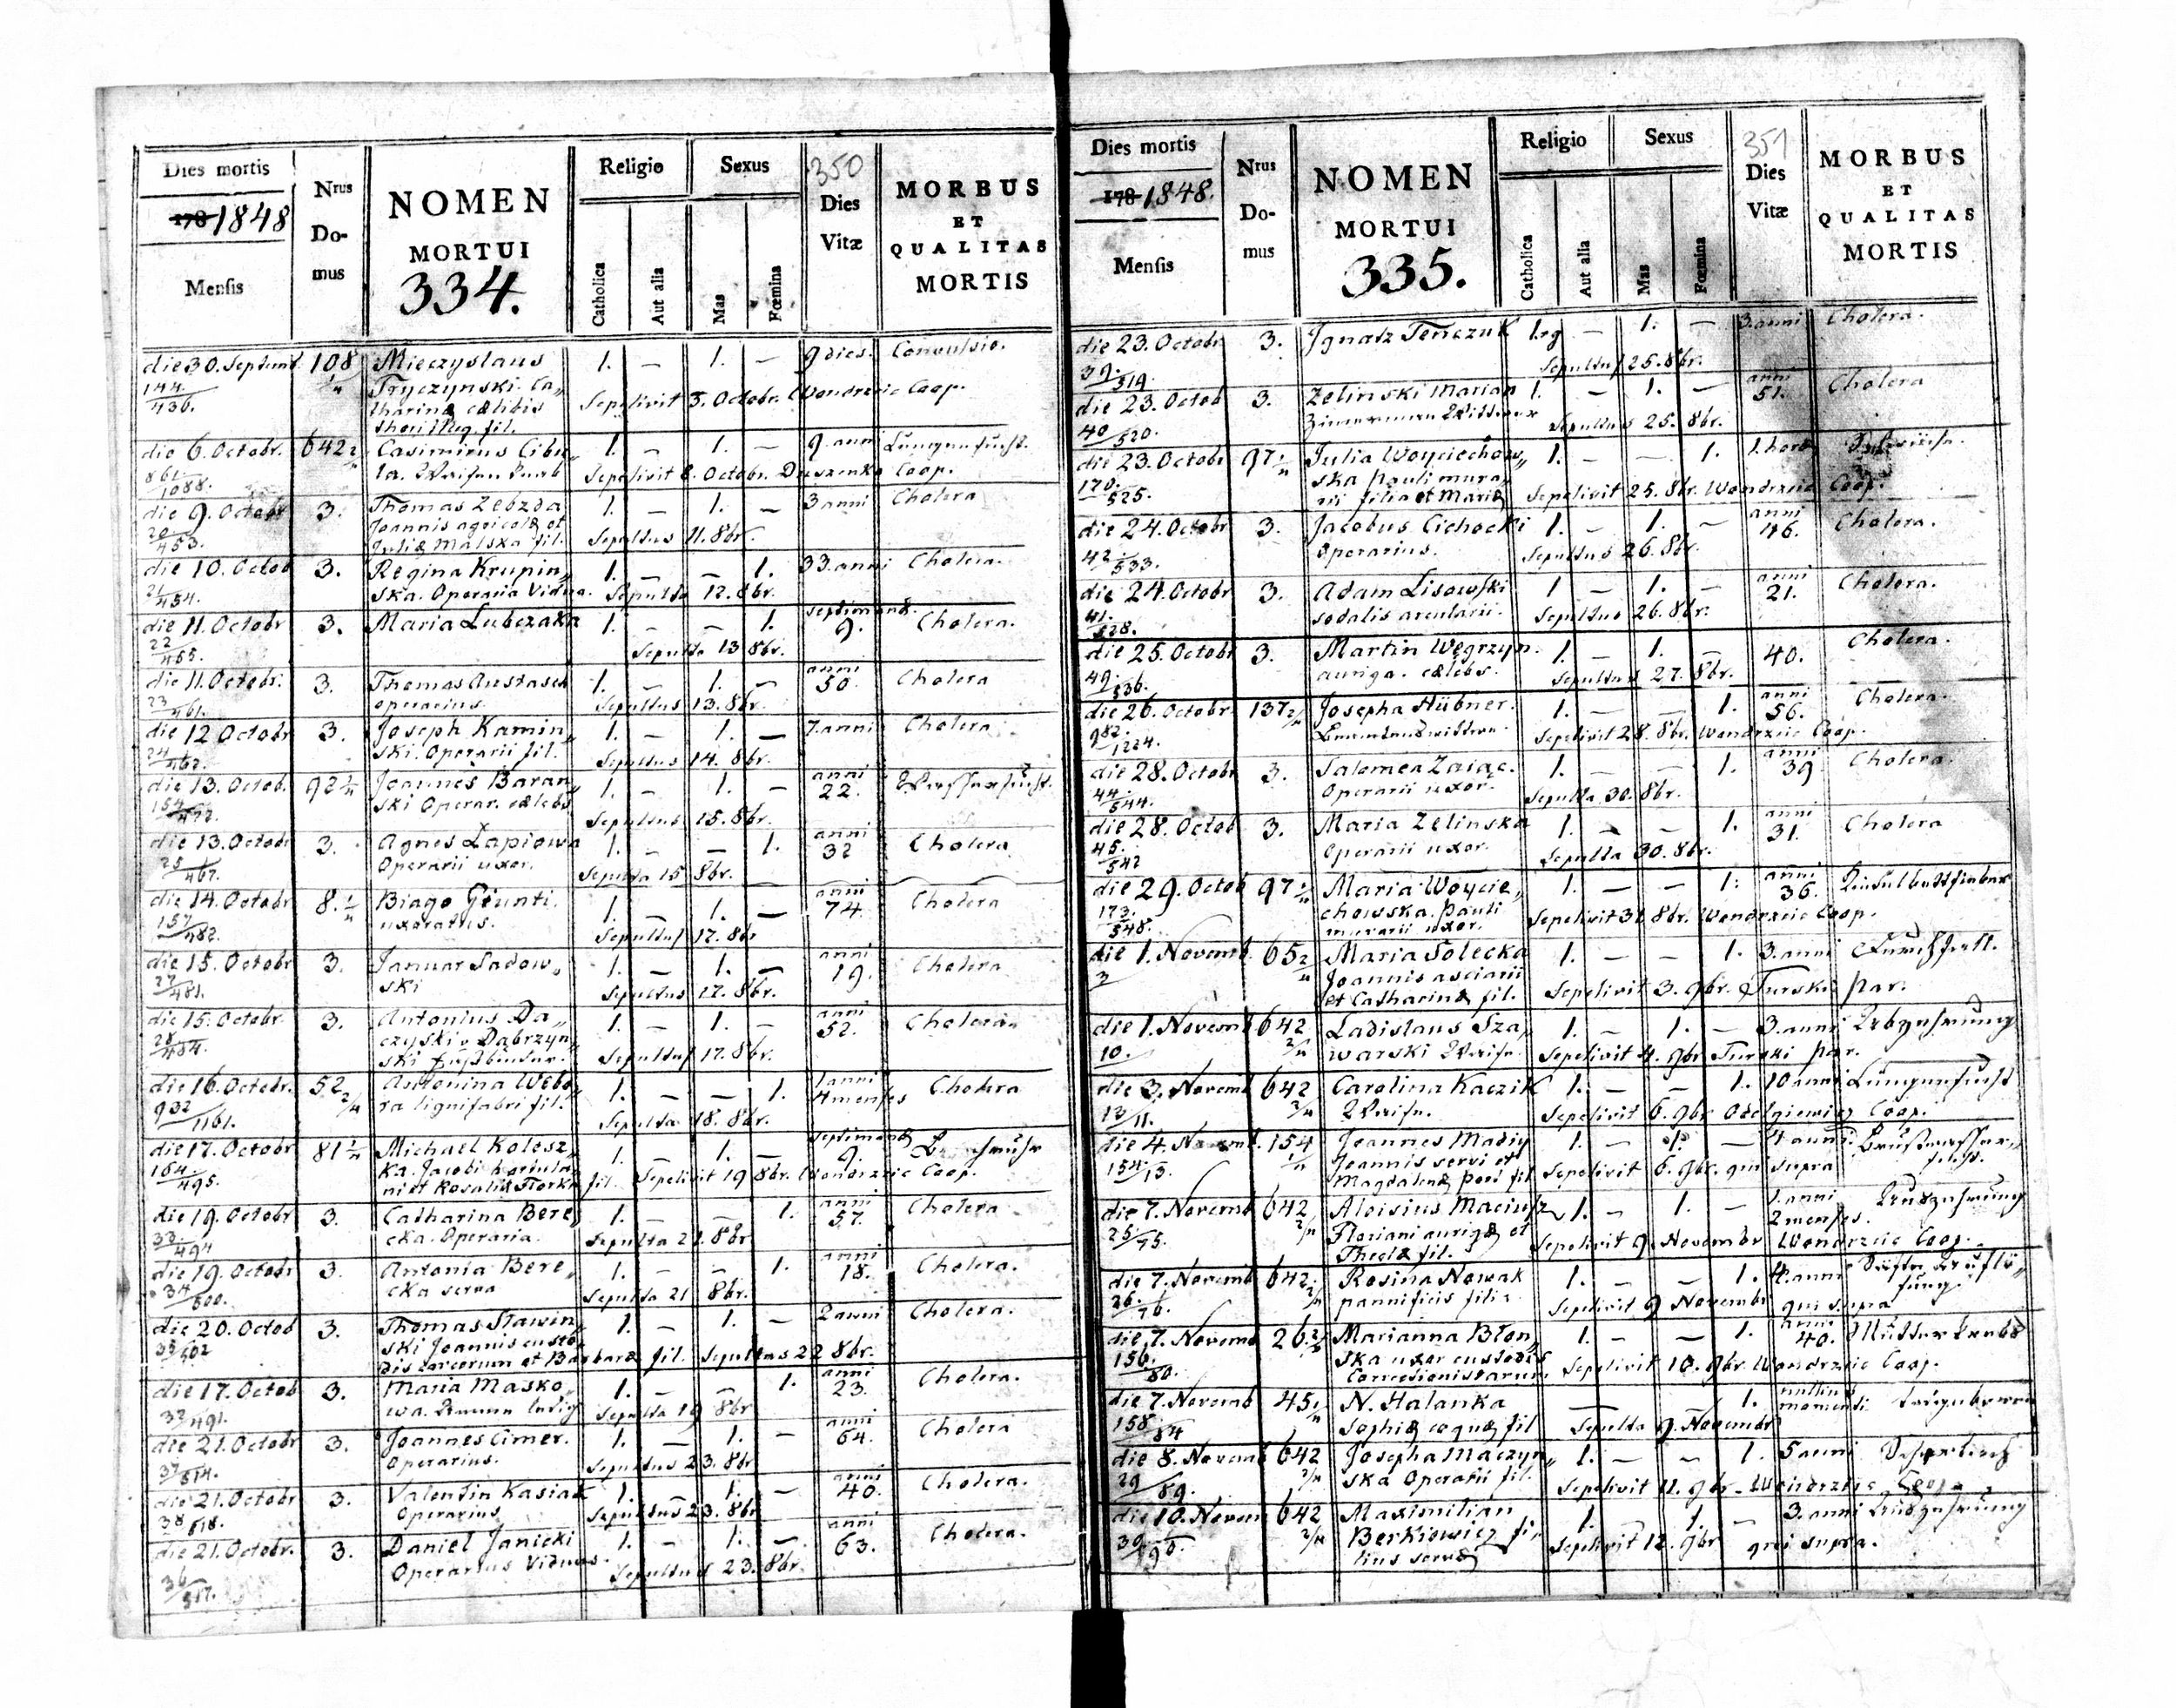 350
Dies mortis
178 1848
Mensis
Nrus Do- mus
NOMEN
MORTUI
334.
Religio
Catholica
Aut alia
Sexus
Mas
Fœmina
Dies
Vitæ
MORBUS
ET
QUALITAS
MORTIS
die 30. Septemb 108 Mieczyslaus 1. — 1. — 9 dies. Convulsio.
144/436. Tryczynski. Ca„
tharinæ cælibis Sepelivit 3. Octobr. Wondrzeic Coop.
fil.
die 6. Octobr. 642 2/n Casimirus Cibu„ 1. — 1. — 9. anni Lungensucht.
861/1088. la. Waisen Knab Sepelivit 8. Octobr. Duszenko Coop.
die 9. Octobr 3. Thomas Zebzda 1. — 1. — 3 anni Cholera
20/453. Joannis agricolæ et
Juliæ Malska fil. Sepultus 11. 8br.
die 10. Octob 3. Regina Krupin„ 1. — — 1. 33. anni Cholera.
21/454. ska. Operaria Vidua. Sepulta 12. 8br.
die 11. Octobr 3. Maria Lubczaka 1. — — 1. septimanæ 9. Cholera.
22/455. Sepulta 13 8br.
die 11. Octobr. 3. Thomas Austasch 1. — 1. — anni 50. Cholera
23/461. operarius. Sepultus 13. 8br.
die 12 Octobr 3. Joseph Kamin„ 1. — 1. — 7. anni Cholera
24/462. ski. Operarii fil. Sepultus 14. 8br.
die 13. Octob. 92 1/n Joannes Baran„ 1. — 1. — anni 22. Wassersucht.
154/472. ski Operar. cælebs Sepultus 15. 8br.
die 13. Octobr 3. Agnes Lapiowa 1. — — 1. anni 32 Cholera
25/467. Operarii uxor. Sepulta 15 8br.
die 14. Octobr 8. 1/n Biago Giunti. 1. — 1. — anni 74. Cholera
157/482. uxoratus. Sepultus 17. 8br
die 15. Octobr 3. Januar Sadow„ 1. — 1. — anni 19. Cholera
27/481. ski Sepultus 17. 8br.
die 15. Octobr. 3. Antonius Da„ 1. — 1. — anni 52. Cholera
28/484. czyski v. Dąbrzyn„
ski Sepultus 17. 8br.
die 16. Octobr. 52 2/n Antonina Webo„ 1. — — 1. 1 anni 4 menses Cholera
932/1161. ra lignifabri fil. Sepulta 18. 8br.
die 17. Octobr 81 1/n Michael Kolesz„ 1. — 1. — septimanæ 9.
164/495. ka. Jacobi
ni et Rosaliæ Fiorka fil. Sepelivit 19 8br. Wondrzeic Coop.
die 19. Octobr 3. Catharina Bere„ 1. — — 1. anni 57. Cholera
33/494 cka. Operaria. Sepulta 21. 8br
die 19. Octobr 3. Antonia Bere„ 1. — — 1. anni 18. Cholera.
34/500. cka serva Sepulta 21 8br.
die 20. Octob 3. Thomas Slawin„ 1. — 1. — 2 anni Cholera.
35/502 ski Joannis custo„
dis carcerum et Barbaræ fil. Sepultus 22 8br.
die 17. Octob 3. Maria Masko„ 1. — — 1. anni 23. Cholera.
32/491. wa. ledig Sepulta 19 8br
die 21. Octobr 3. Joannes Cimer. 1. — 1. — anni 64. Cholera
37/514. Operarius. Sepultus 23. 8br
die 21. Octobr 3. Valentin Kasiak 1. — 1. — anni 40. Cholera.
38/518. Operarius Sepultus 23. 8br
die 21. Octobr. 3. Daniel Janicki 1. — 1. — anni 63. Cholera.
36/517. Operarius Viduus. Sepultus 23. 8br.
351
Dies mortis
178 1848.
Mensis
Nrus Do- mus
NOMEN
MORTUI
335.
Religio
Catholica
Aut alia
Sexus
Mas
Fœmina
Dies
Vitæ
MORBUS
ET
QUALITAS
MORTIS
die 23. Octobr. 3. Ignatz Tenczuk — 1. — 3. anni Cholera.
39./519. Sepultus 25. 8br.
die 23. Octob 3. Zelinski Marian 1. — 1. — anni 51. Cholera
40/520. Zimmermann Wittwer Sepultus 25. 8br.
die 23. Octobr 97 1/n Julia Woyciechow„ 1. — — 1. 1. hora
170./525. ska Pauli mura„
rii filia et Mariæ Sepelivit 25. 8br. Wondrzeic Coop.
die 24. Octobr 3. Jacobus Cichocki 1. — 1. — anni 46. Cholera.
42./533. Operarius. Sepultus 26. 8br.
die 24. Octobr 3. Adam Lisowski 1 — 1. — anni 21. Cholera.
41./528. sodalis arcularii. Sepultus 26. 8br.
die 25. Octobr 3. Martin Węgrzyn. 1. — 1. — 40. Cholera.
49./536. auriga. cælebs. Sepultus 27. 8br.
die 26. Octobr. 137 2/n Josepha Hübner. 1. — — 1. anni 56. Cholera.
982./1224. Sepelivit 28. 8br. Wondrzeic Coop.
die 28. Octobr 3. Salomea Zaiąc. 1. — — 1. anni 39 Cholera.
44./544. Operarii uxor. Sepulta 30. 8br.
die 28. Octob 3. Maria Zelinska 1. — — 1. anni 31. Cholera
45./542 Operarii uxor. Sepulta 30. 8br.
die 29. Octob 97 1/n Maria Woycie„ 1. — — 1. anni 36. Kindbettfieber
173./548. chowska. Pauli
murarii uxor. Sepelivit 31. 8br. Wondrzeic Coop.
die 1. Novemb. 65 2/n Maria Solecka 1. — — 1. 3. anni Durchfall.
3 Joannis asciarii
et Catharinæ fil. Sepelivit 3. 9br. Turski Par.
die 1. Novemb 642 2/n Ladislaus Sza„ 1. — 1. — 3. anni Abzehrung
10. warski Waise. Sepelivit 4. 9br Turski Par.
die 3. Novemb 642 2/n Carolina Kaczik 1. — — 1. 10 anni Lungensucht
13/11. Waise. Sepelivit 6. 9br Odelgiewicz Coop.
die 4. Novemb. 154 1/n Joannes Madiy 1. — 1. — 4 anni. Brustwasser„
154/13. Joannis servi et sucht.
Magdalenæ fil Sepelivit 6. 9br. qui supra
die 7. Novemb 642 2/n Aloisius Maciusz 1. — 1. — 1. anni 2 menses. Auszehrung
25/75. Floriani aurigæ et
Theclæ fil. Sepelivit 9. Novembr Wondrzeic Coop.
die 7. Novemb 642. 2/n Rosina Nowak 1. — — 1. 4. anni Säfte Auflö„
26./76. pannificis filia Sepelivit 9 Novembr qui supra sung.
die 7. Novemb 26 2/n Marianna Blon„ 1. — — 1. anni 40. Mutterkrebs
156./80. ska uxor custodis
Correctionistarum. Sepelivit 10. 9br. Wondrzeic Coop.
die 7. Novemb 45 1/n N. Halanka — 1. nullius momenti. todtgeboren
158/84 Sophiæ coquæ fil Sepulta 9. Novembr
die 8. Novemb 642 2/n Josepha Maczyn„ 1. — — 1. 5 anni Scharlach
29/89. ska Operarii fil. Sepelivit 11. 9br. Wondrzeic Coop.
die 10. Novem 642 2/n Maximilian 1. — 1. — 3. anni Auszehrung
30/90. Berkiewicz fi„
lius servæ Sepelivit 12. 9br qui supra.